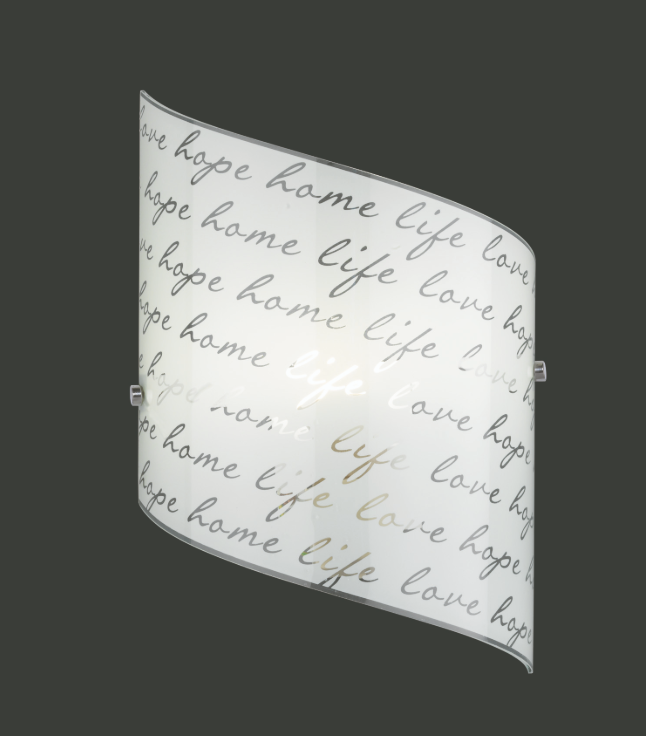 love hope home life love
hope home life love hop
ve hope home life love h
hope home life love hope
e hope home life love hop
pe home life love hope h
hope home life love hop